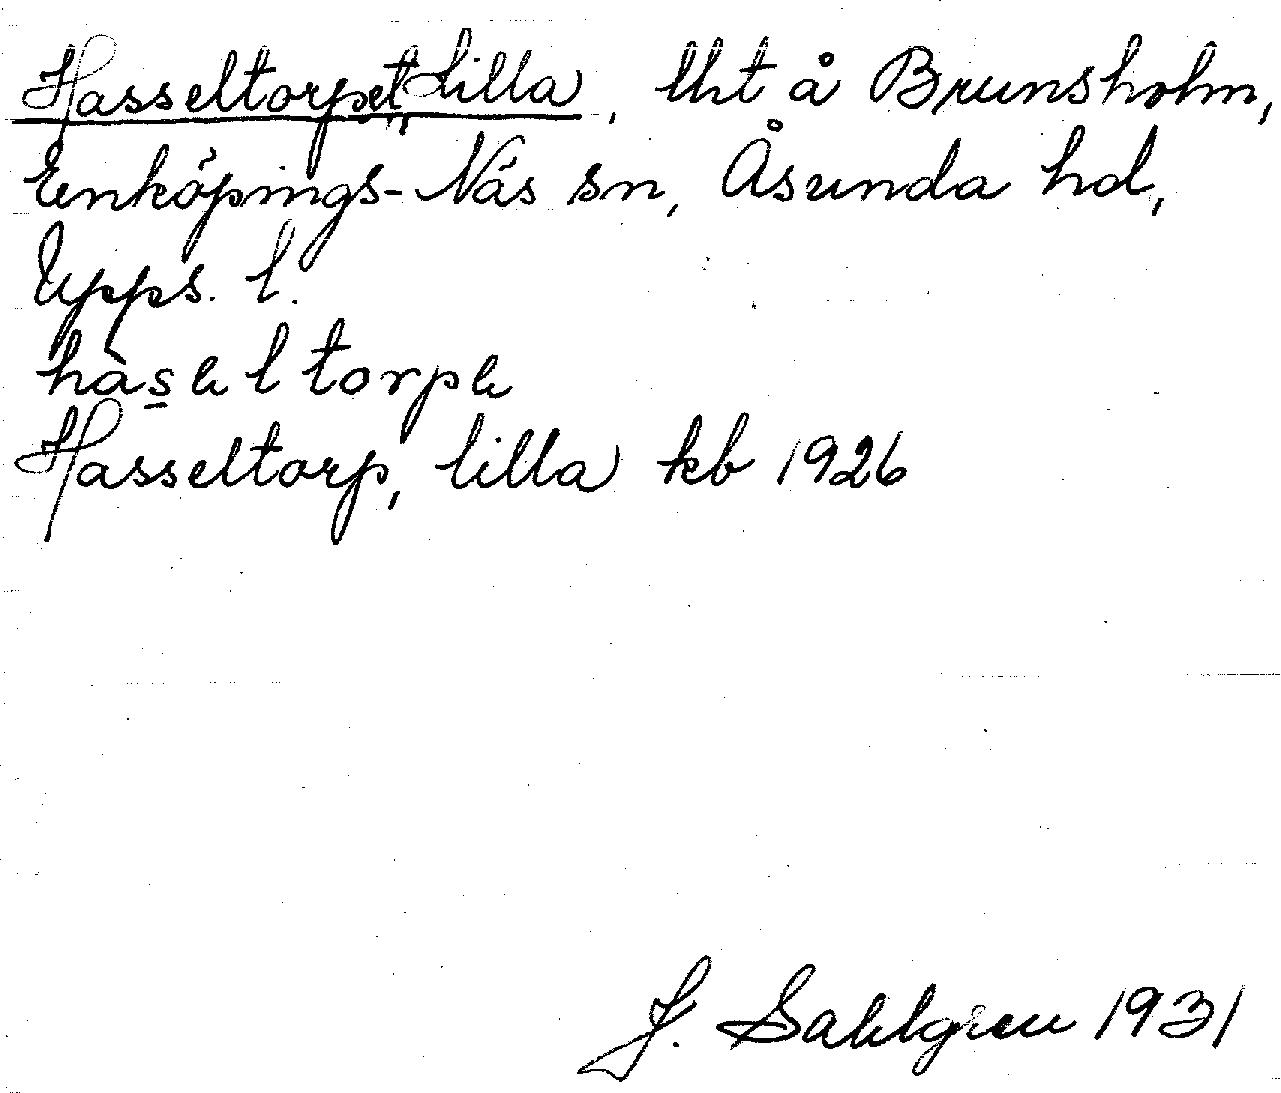 Hasseltorpet, Lilla, lht å Brunsholm,
Enköpings-Näs sn, Åsunda hd,
Upps. l.
hàs̲eltorpe
Hasseltorp, lilla kb 1926
J. Sahlgren 1931